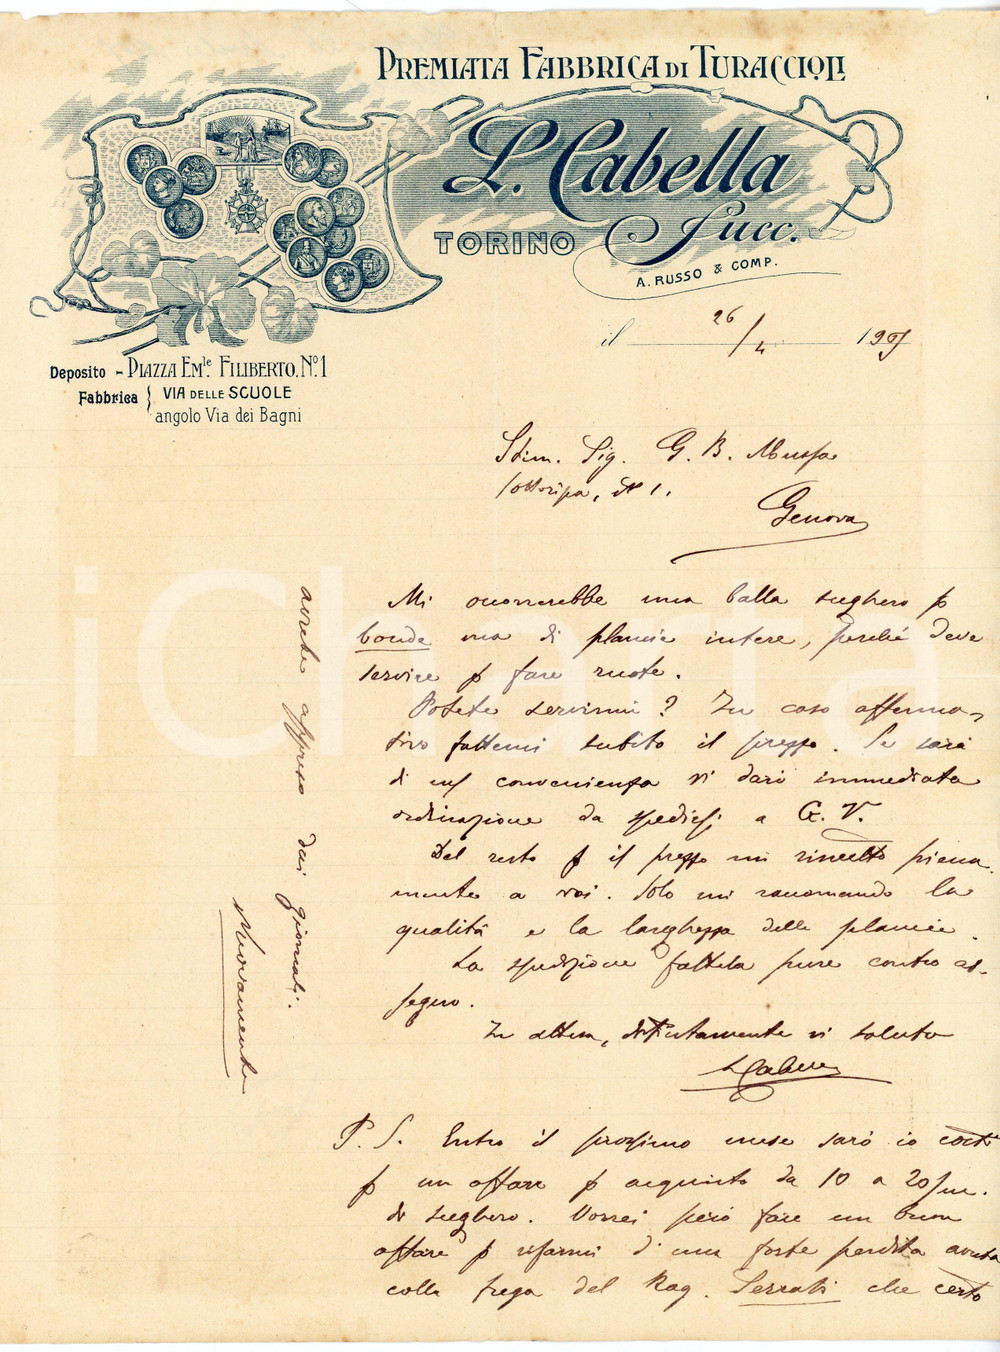 PREMIATA FABBRICA DI TURACCIOLI
L. Cabella
Succ.
TORINO
A. RUSSO & COMP.
il 26/4 1909
Deposito - PIAZZA EM.le FILIBERTO, N.º 1
Fabbrica } VIA DELLE SCUOLE
angolo Via dei Bagni
Stim. Sig. G. B. Mussa
Sottoripa, N 1.
Genova
Mi occorrerebbe una balla sughero p
bonde ma di plancie intere, perché deve
servire p fare ruote.
Potete servirmi? In caso afferma-
tivo fattemi subito il prezzo. Se sarà
di mf convenienza vi darò immediata
ordinazione da spedirsi a G. V.
Del resto p il prezzo mi rimetto piena
mente a voi. Solo mi raccomando la
qualità e la larghezza delle plancie.
La spedizione fattela pure contro as-
segno.
In attesa, distintamente vi saluto
LCabella
P. S. Entro il prossimo mese sarò io costì
p un affare p acquisto da 10 a 20/m.
di sughero. Vorrei però fare un buon
affare p rifarmi d'una forte perdita avuta
colla frega del Rag. Serrati che certo
avrete appreso dai giornali.
Nuovamente
iCharta